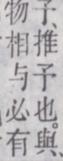 子、推予也。與、
物相与必有